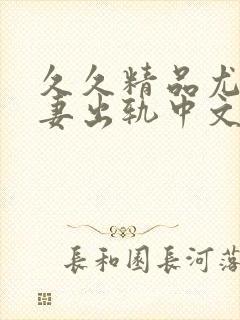 久久精品尤
妻出轨中文
長和園長河落